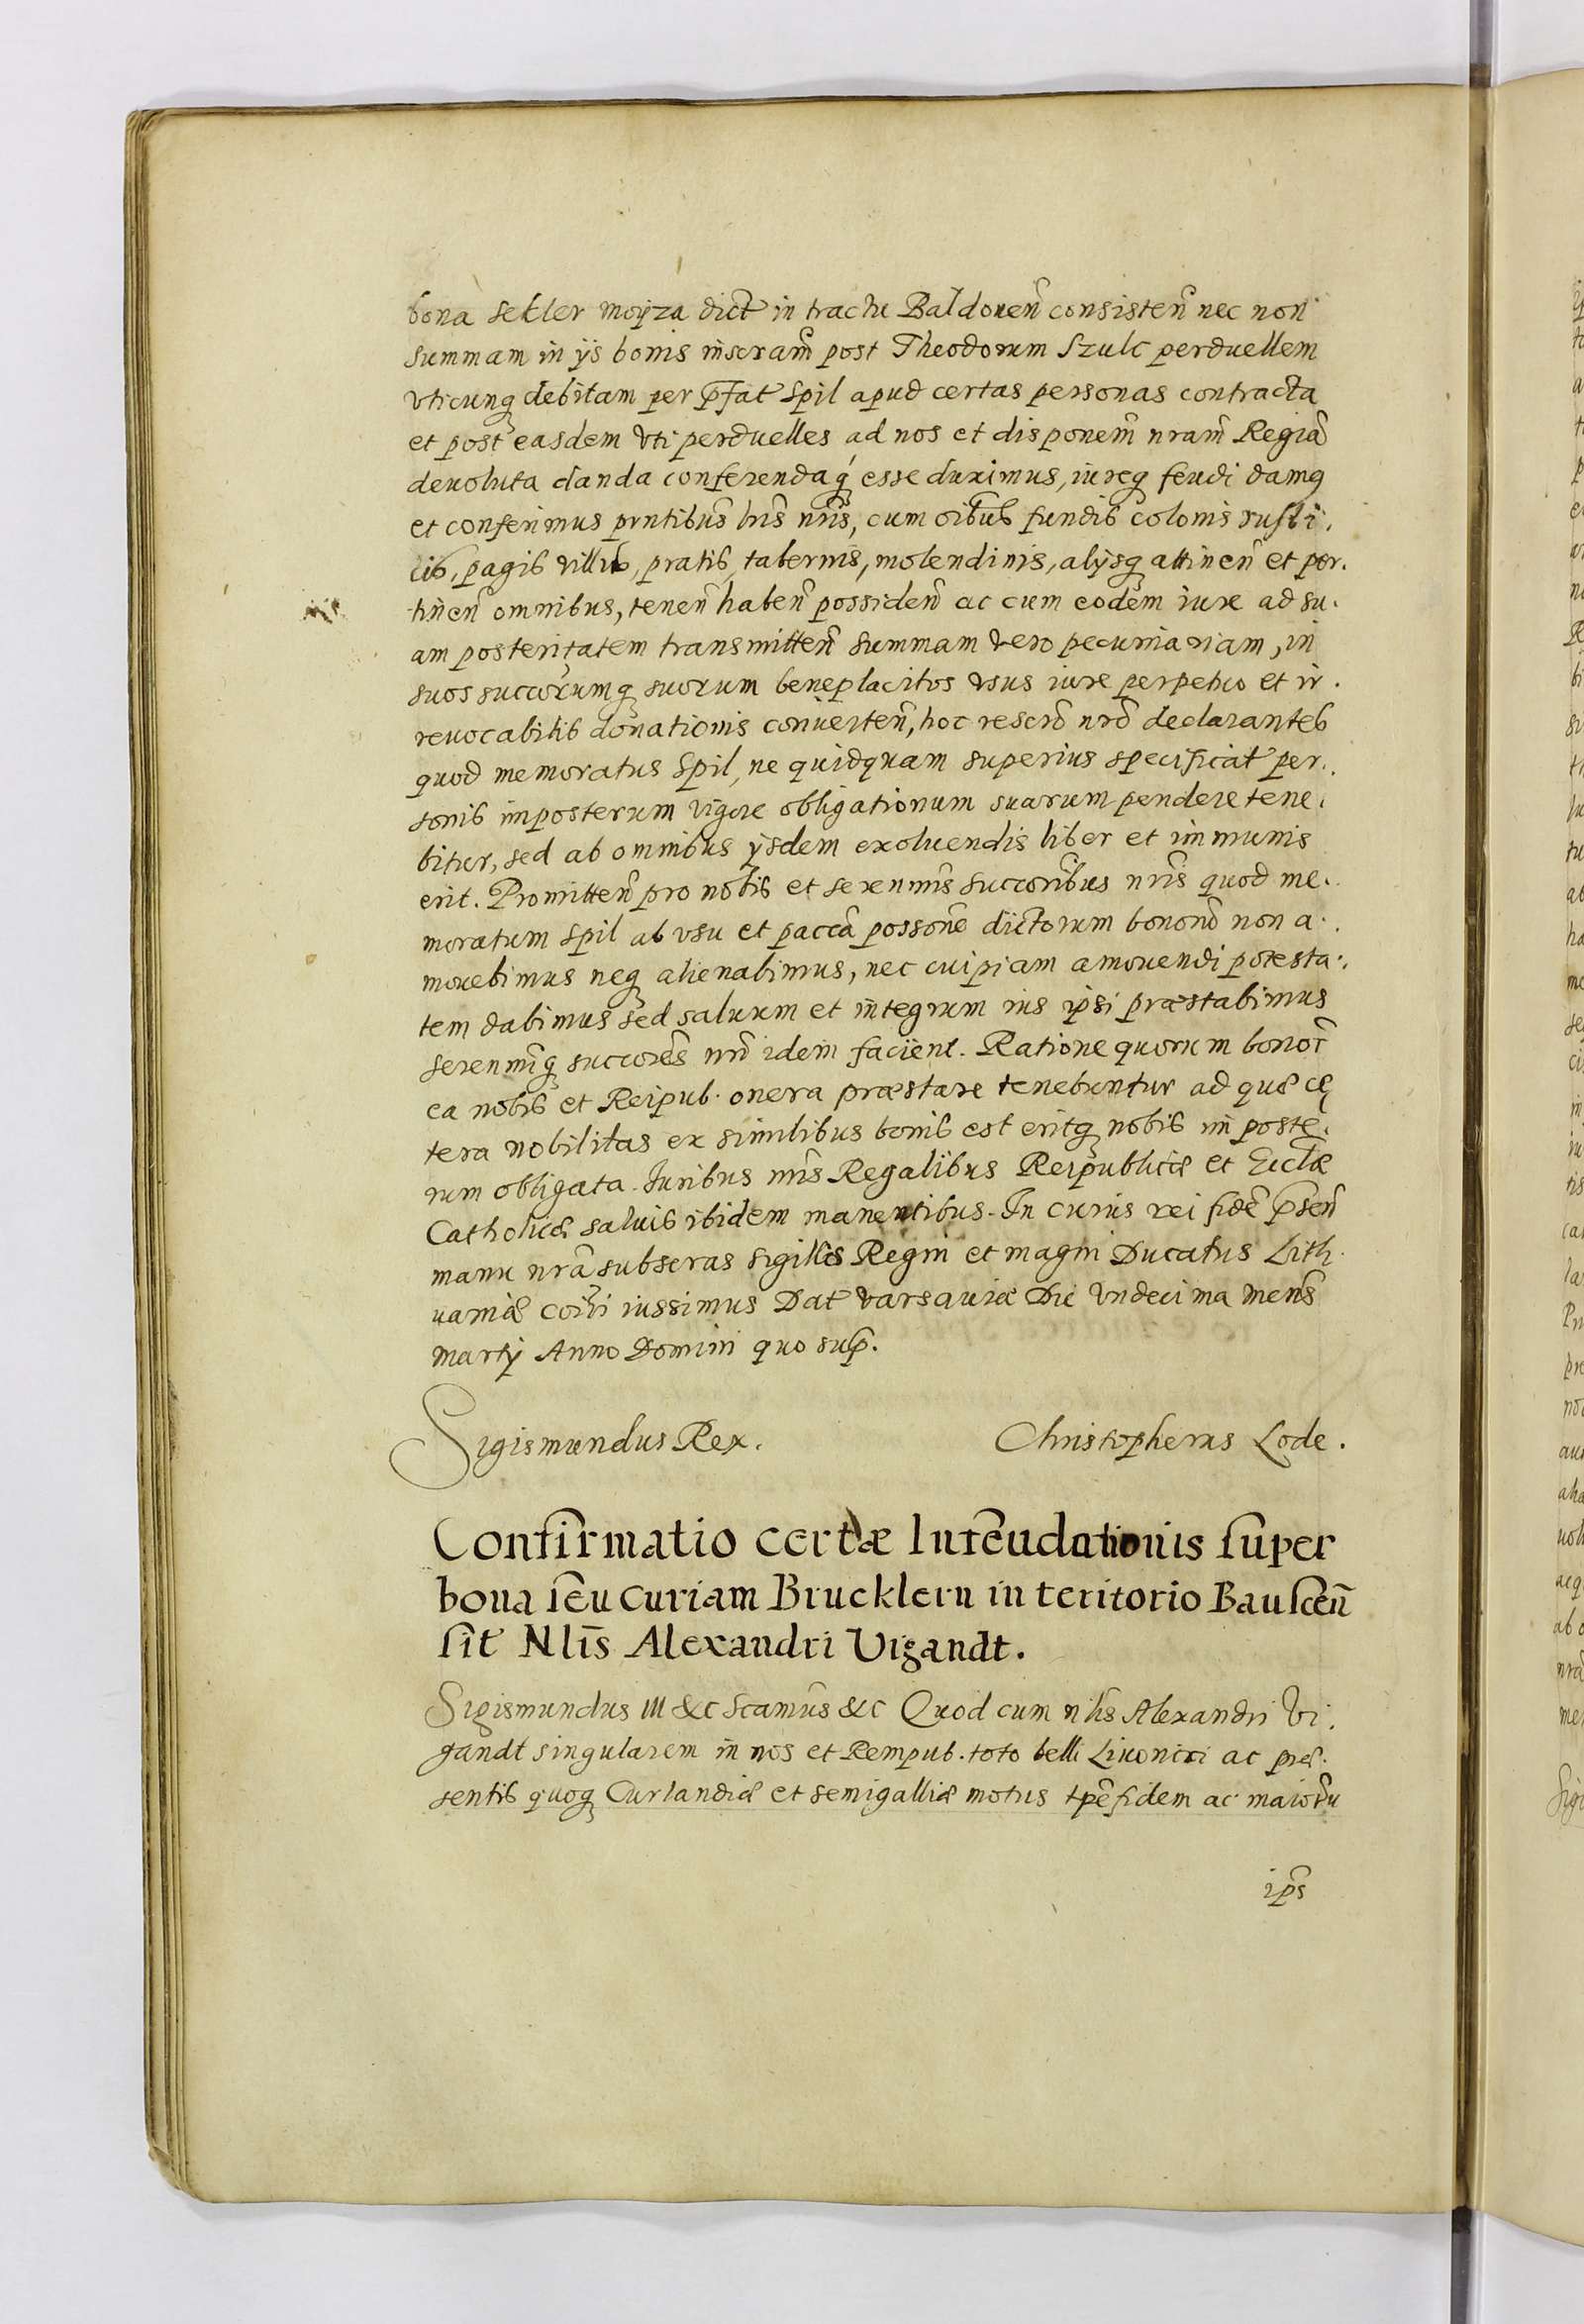 bona sekler moyza dict in tractu Baldonen̄ consisten̄ nec non
summam in ijs bonis inscram̄ post Theodorum Szulc perduellem
vticunq debitam per p̄fat Spil apud certas personas contracta
et post easdem vti perduelles ad nos et disponem̄ nram̄ Regiā
deuoluta danda conferendaq esse duximus, iureq feudi damq
et conferimus pn̄tibus lris nris, cum oibus fundis colonis rusti.
cis, pagis villis, pratis, tabernis, molendinis, alijsq attinen̄ et per.
tinen̄ omnibus, tenen̄ haben̄ possiden̄ ac cum eodem iure ad su.
am posteritatem transmitten̄ summam vero pecuniariam, in
suos succorumq suorum beneplacitos vsus iure perpetuo et ir.
reuocabilis donationis conuerten̄, hoc rescrō nrō declarantes
quod memoratus Spil, ne quidquam superius specificat per.
sonis inposterum vigore obligationum suarum pendere tene.
bitur, sed ab omnibus ijsdem exoluendis liber et immunis
erit. Promitten̄ pro nobis et serenmis succoribus nris quod me.
moratum Spil ab vsu et paccā possone dictorum bonorū non a.
mouebimus neq alienabimus, nec cuipiam amouendi potesta.
tem dabimus sed saluum et integrum ius ipsi præstabimus
serenmiq succores nri idem facient. Ratione quorum bonor̄
ea nobis et Reipub. onera præstare tenebuntur ad quæ cę
tera nobilitas ex similibus bonis est eritq nobis in poste.
rum obligata. Iuribus nris Regalibus Reipublicæ et Ecclæ
Catholicæ saluis ibidem manentibus. In cuius rei fidē p̄sen̄
manu nrā subscras sigillis Regni et magni Ducatus Lith.
uaniæ coīri iussimus Dat Varsauiæ Die Vndecima mens̄
martij Anno Domini quo sup̄.
Sigismundus Rex. Christopherus Lode.
Confirmatio certæ Infeudationis super
bona seu curiam Brucklern in teritorio Bauscen̄
sit Nlis Alexandri Vigandt.
Sigismundus III &c Scamus &c Quod cum nlis Alexandri Vi.
gandt singularem in nos et Rempub. toto belli Liuonici ac præ.
sentis quoq Curlandiæ et semigalliæ motus tpē fidem ac maiorū
ips̄